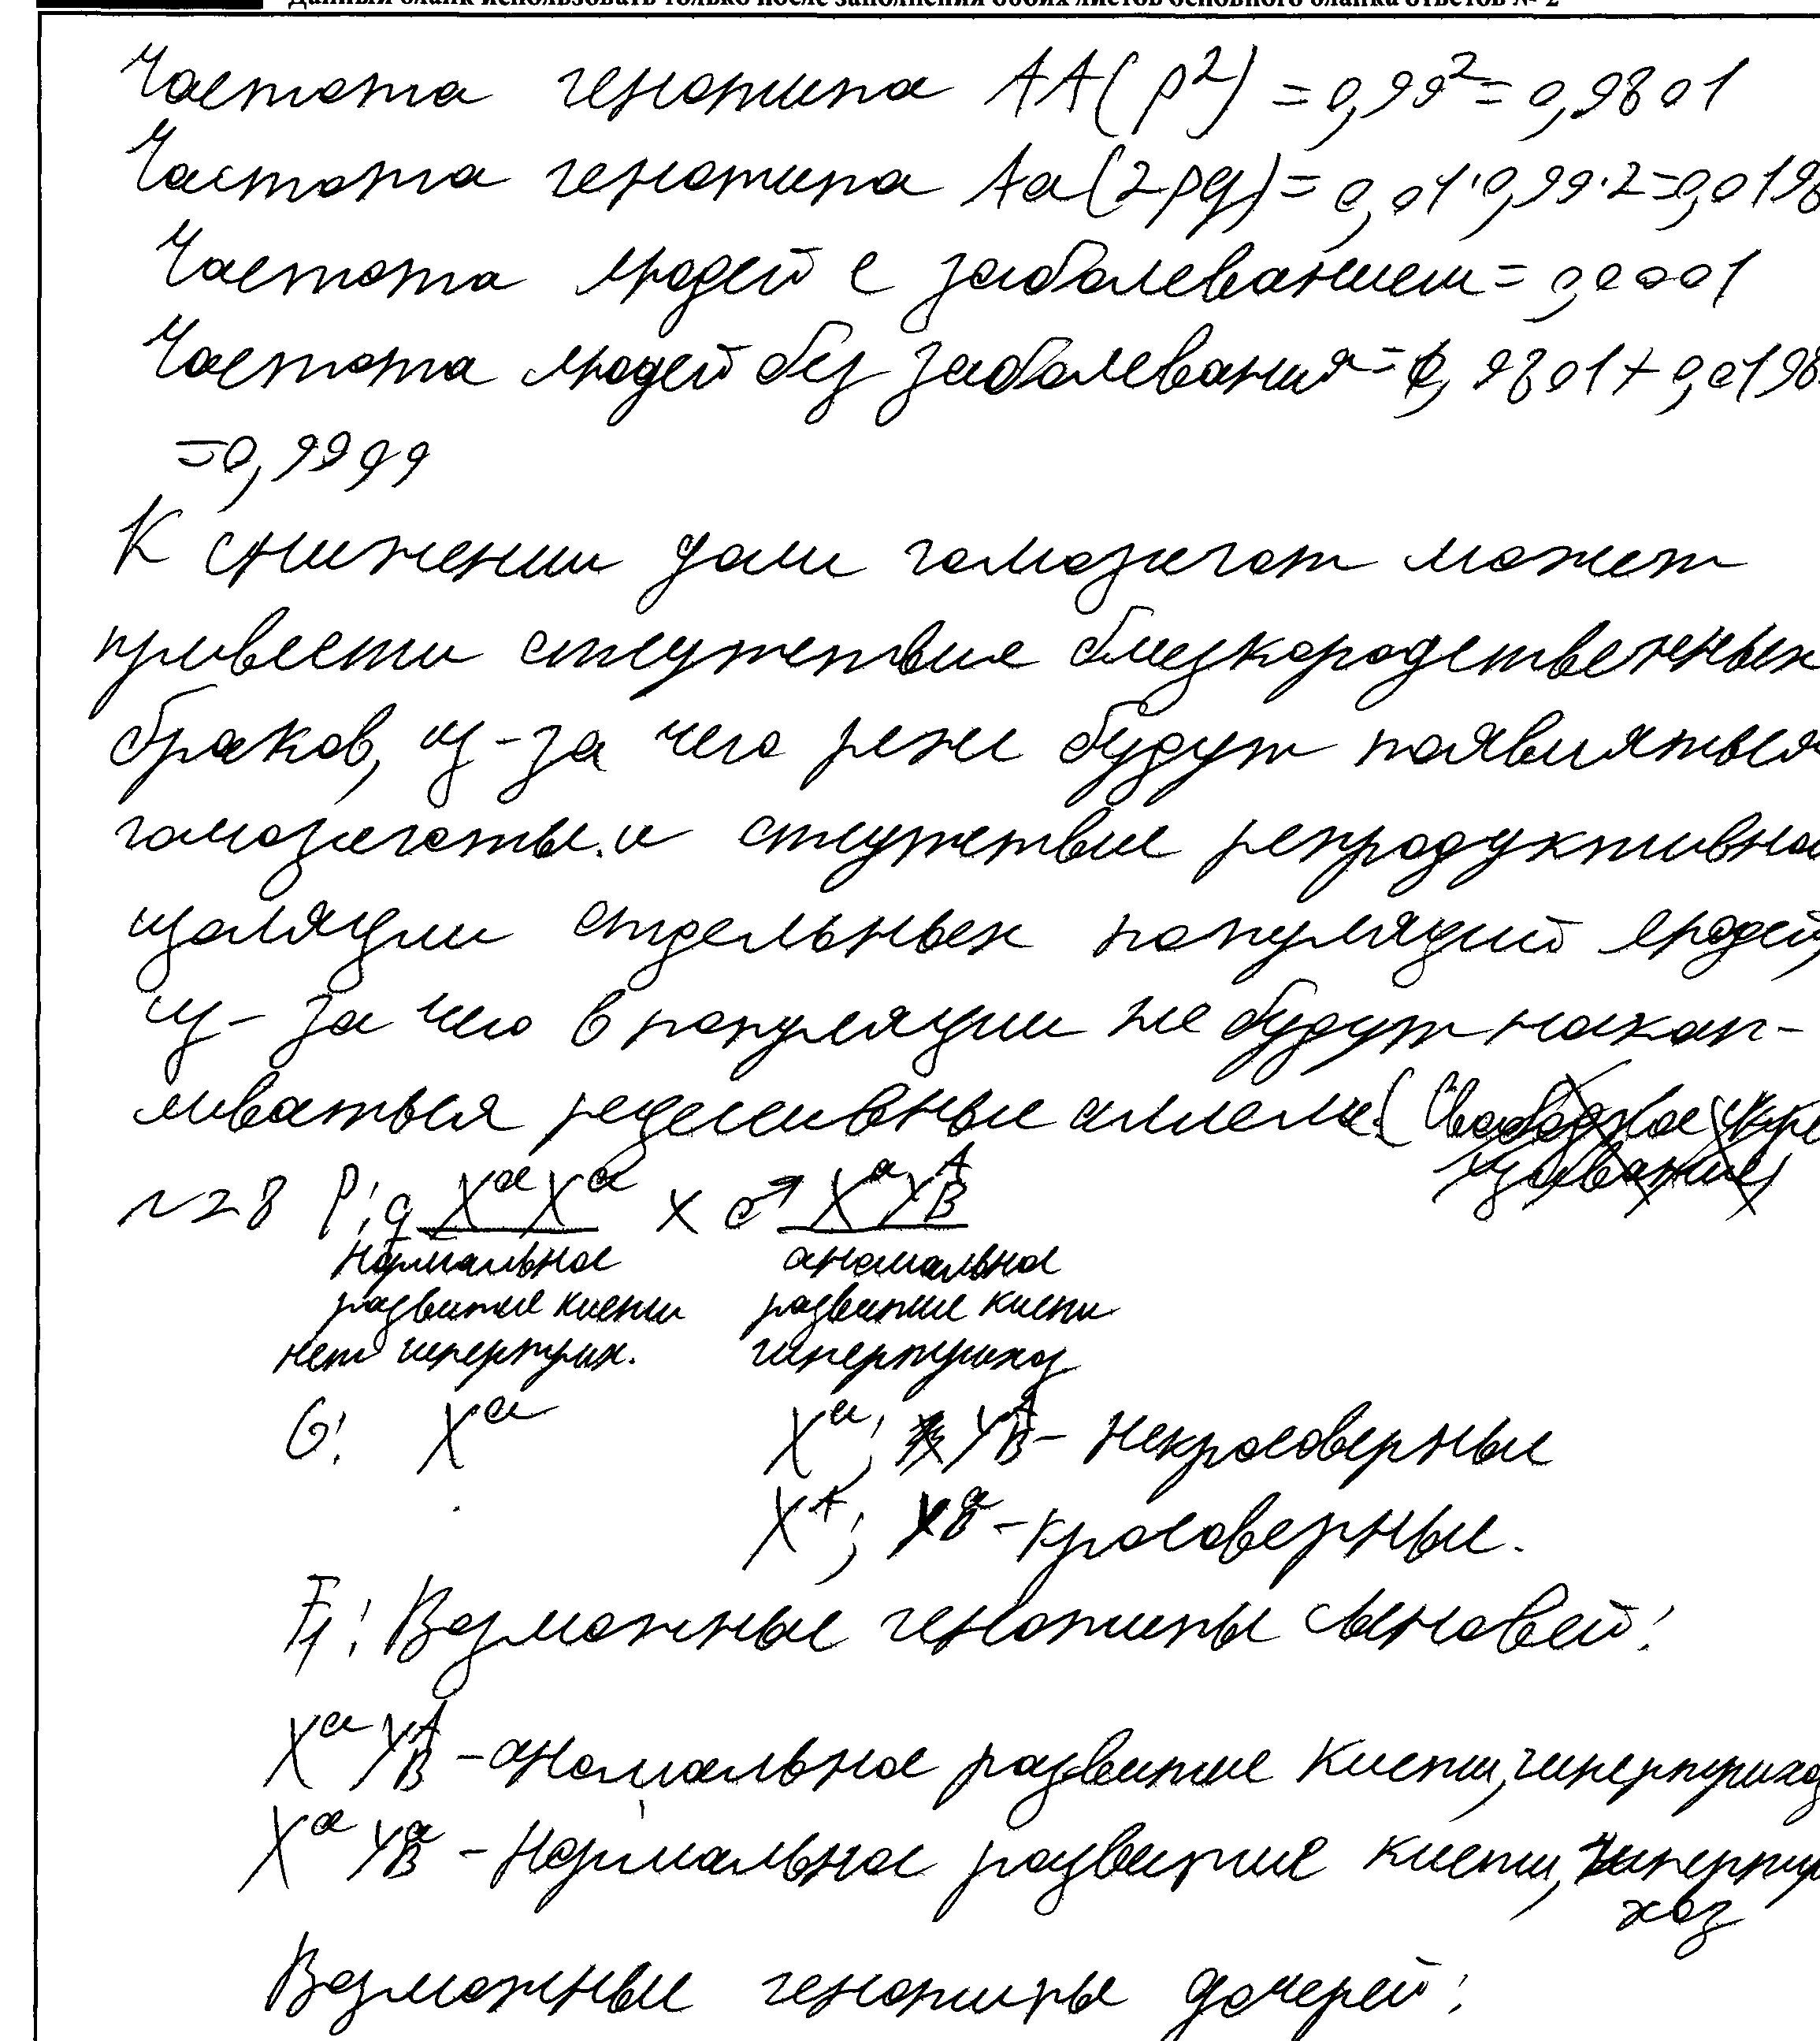 Данный бланк использовать только после заполнения обоих листов основного бланка ответов № 2
Частота генотипа AA(p²) = 0,99² = 0,9801
Частота генотипа Aa(2pq) = 0,01·0,99·2=0,0198
Частота людей с заболеванием = 0,0001
Частота людей без заболевания = 0,9801 + 0,0198
=0,9999
К снижению доли гомозигот может
привести отсутствие близкородственных
браков, из-за чего реже будут появляться
гомозиготы. и отсутствие репродуктивно
изоляции отдельных популяций людей,
из-за чего в популяции не будут накап-
ливаться рецессивные аллели. (Свободное скре
щивание)
№28 P: ♀ XᵃXᵃ x ♂ XᵃYᴬB
нормальное аномальное
развитие кисти развитие кисти
нет гипертрих. гипертрихоз
G: Xᵃ Xᵃ; YᴬB - некроссоверные
Xᴬ; YᵃB - кроссоверные.
F₁: Возможные генотипы сыновей:
XᵃYᴬB - аномальное развитие кисти, гипертрихоз
XᵃYᵃB - нормальное развитие кисти, гипертри
хоз
Возможные генотипы дочерей: